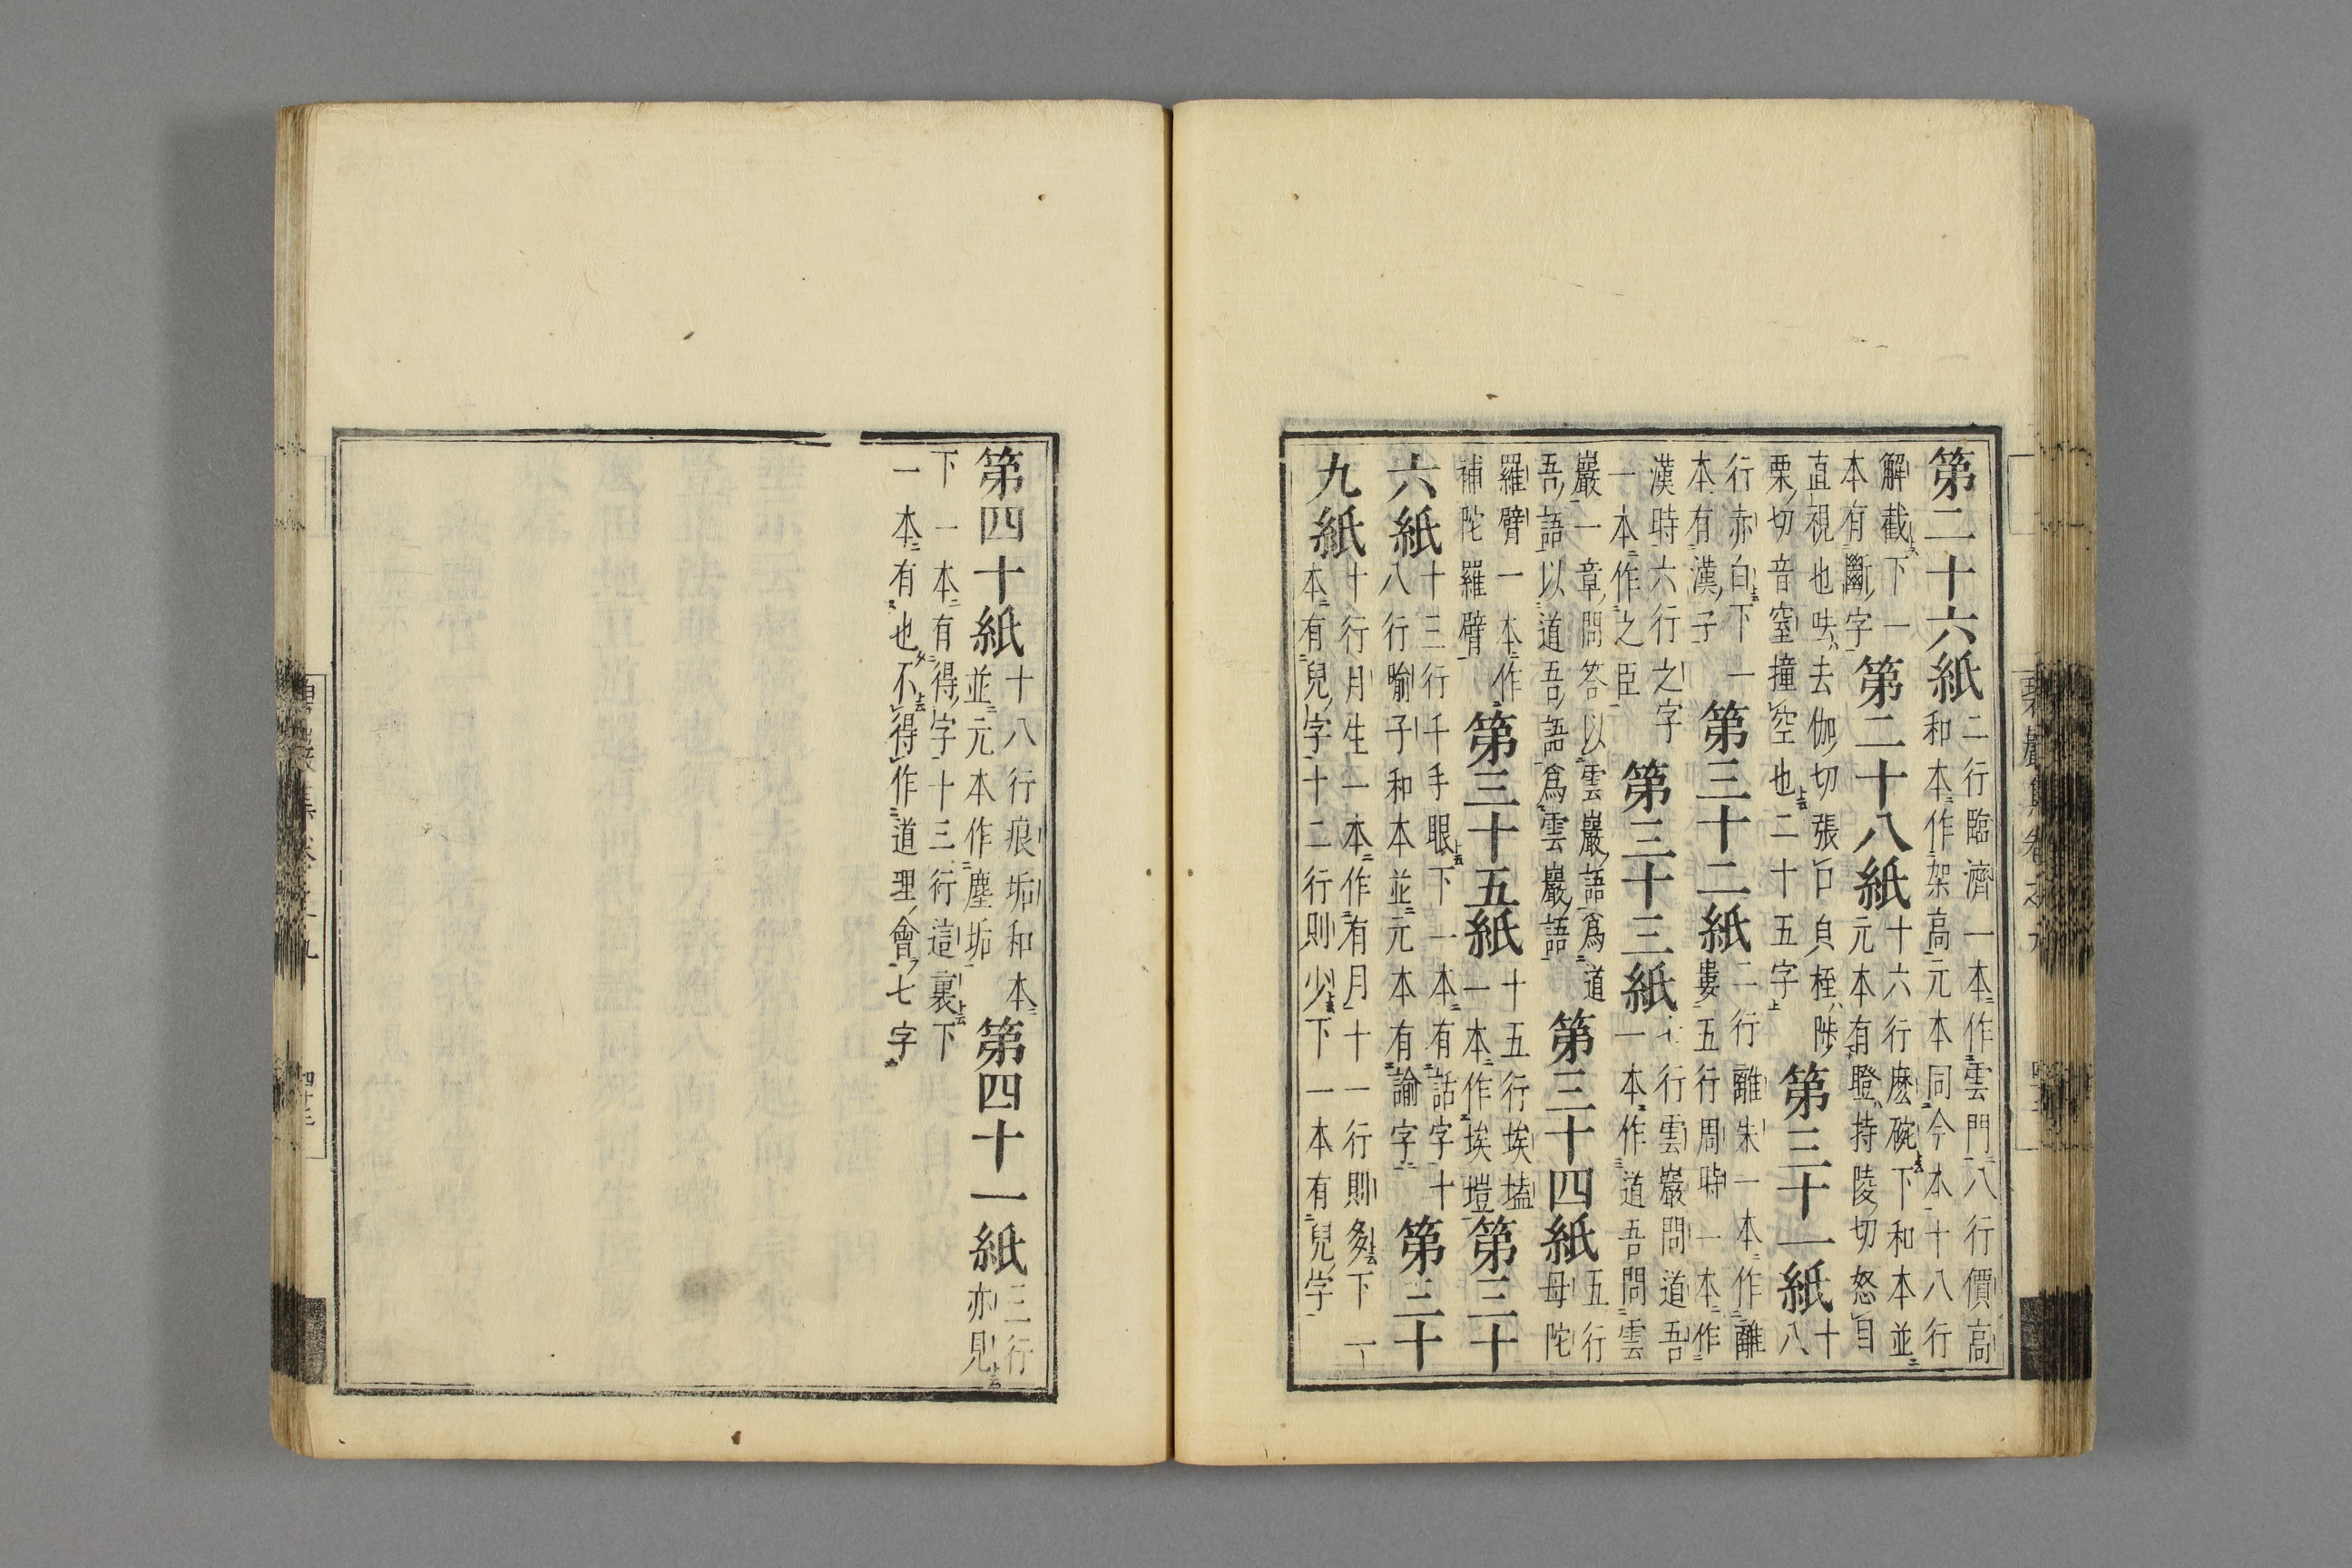 第二十六紙
二行臨濟一本作雲門八行價高
和本作架高元本同今本十八行
解截下一
本有斷字
第二十八紙
十六行麽碗下和本並
元本有瞪持陵切怒目
直視也呿去伽切張口皃桎陟
栗切音窒撞空也二十五字
第三十一紙
十
八
行亦白下一
本有漢子
第三十二紙
二行離朱一本作離
婁五行周時一本作
漢時六行之字
一本作之臣
第三十三紙
行雲巖問道吾
一本作道吾問雲
巖一章問答以雲巖語爲道
吾語以道吾語爲雲巖語
第三十四紙
五行
母陀
羅臂一本作
補陀羅臂
第三十五紙
十五行埃壒
一本作埃塏
第三十
六紙
十三行千手眼下一本有話字十
八行喻子和本並元本有諭字
第三十
九紙
十行月生一本作有月十一行則多下一
本有兒字十二行則少下一本有兒字
第四十紙
十八行痕垢和本
並元本作塵垢
第四十一紙
三行
亦見
下一本有得字十三行這裏下
一本有也不得作道理會七字